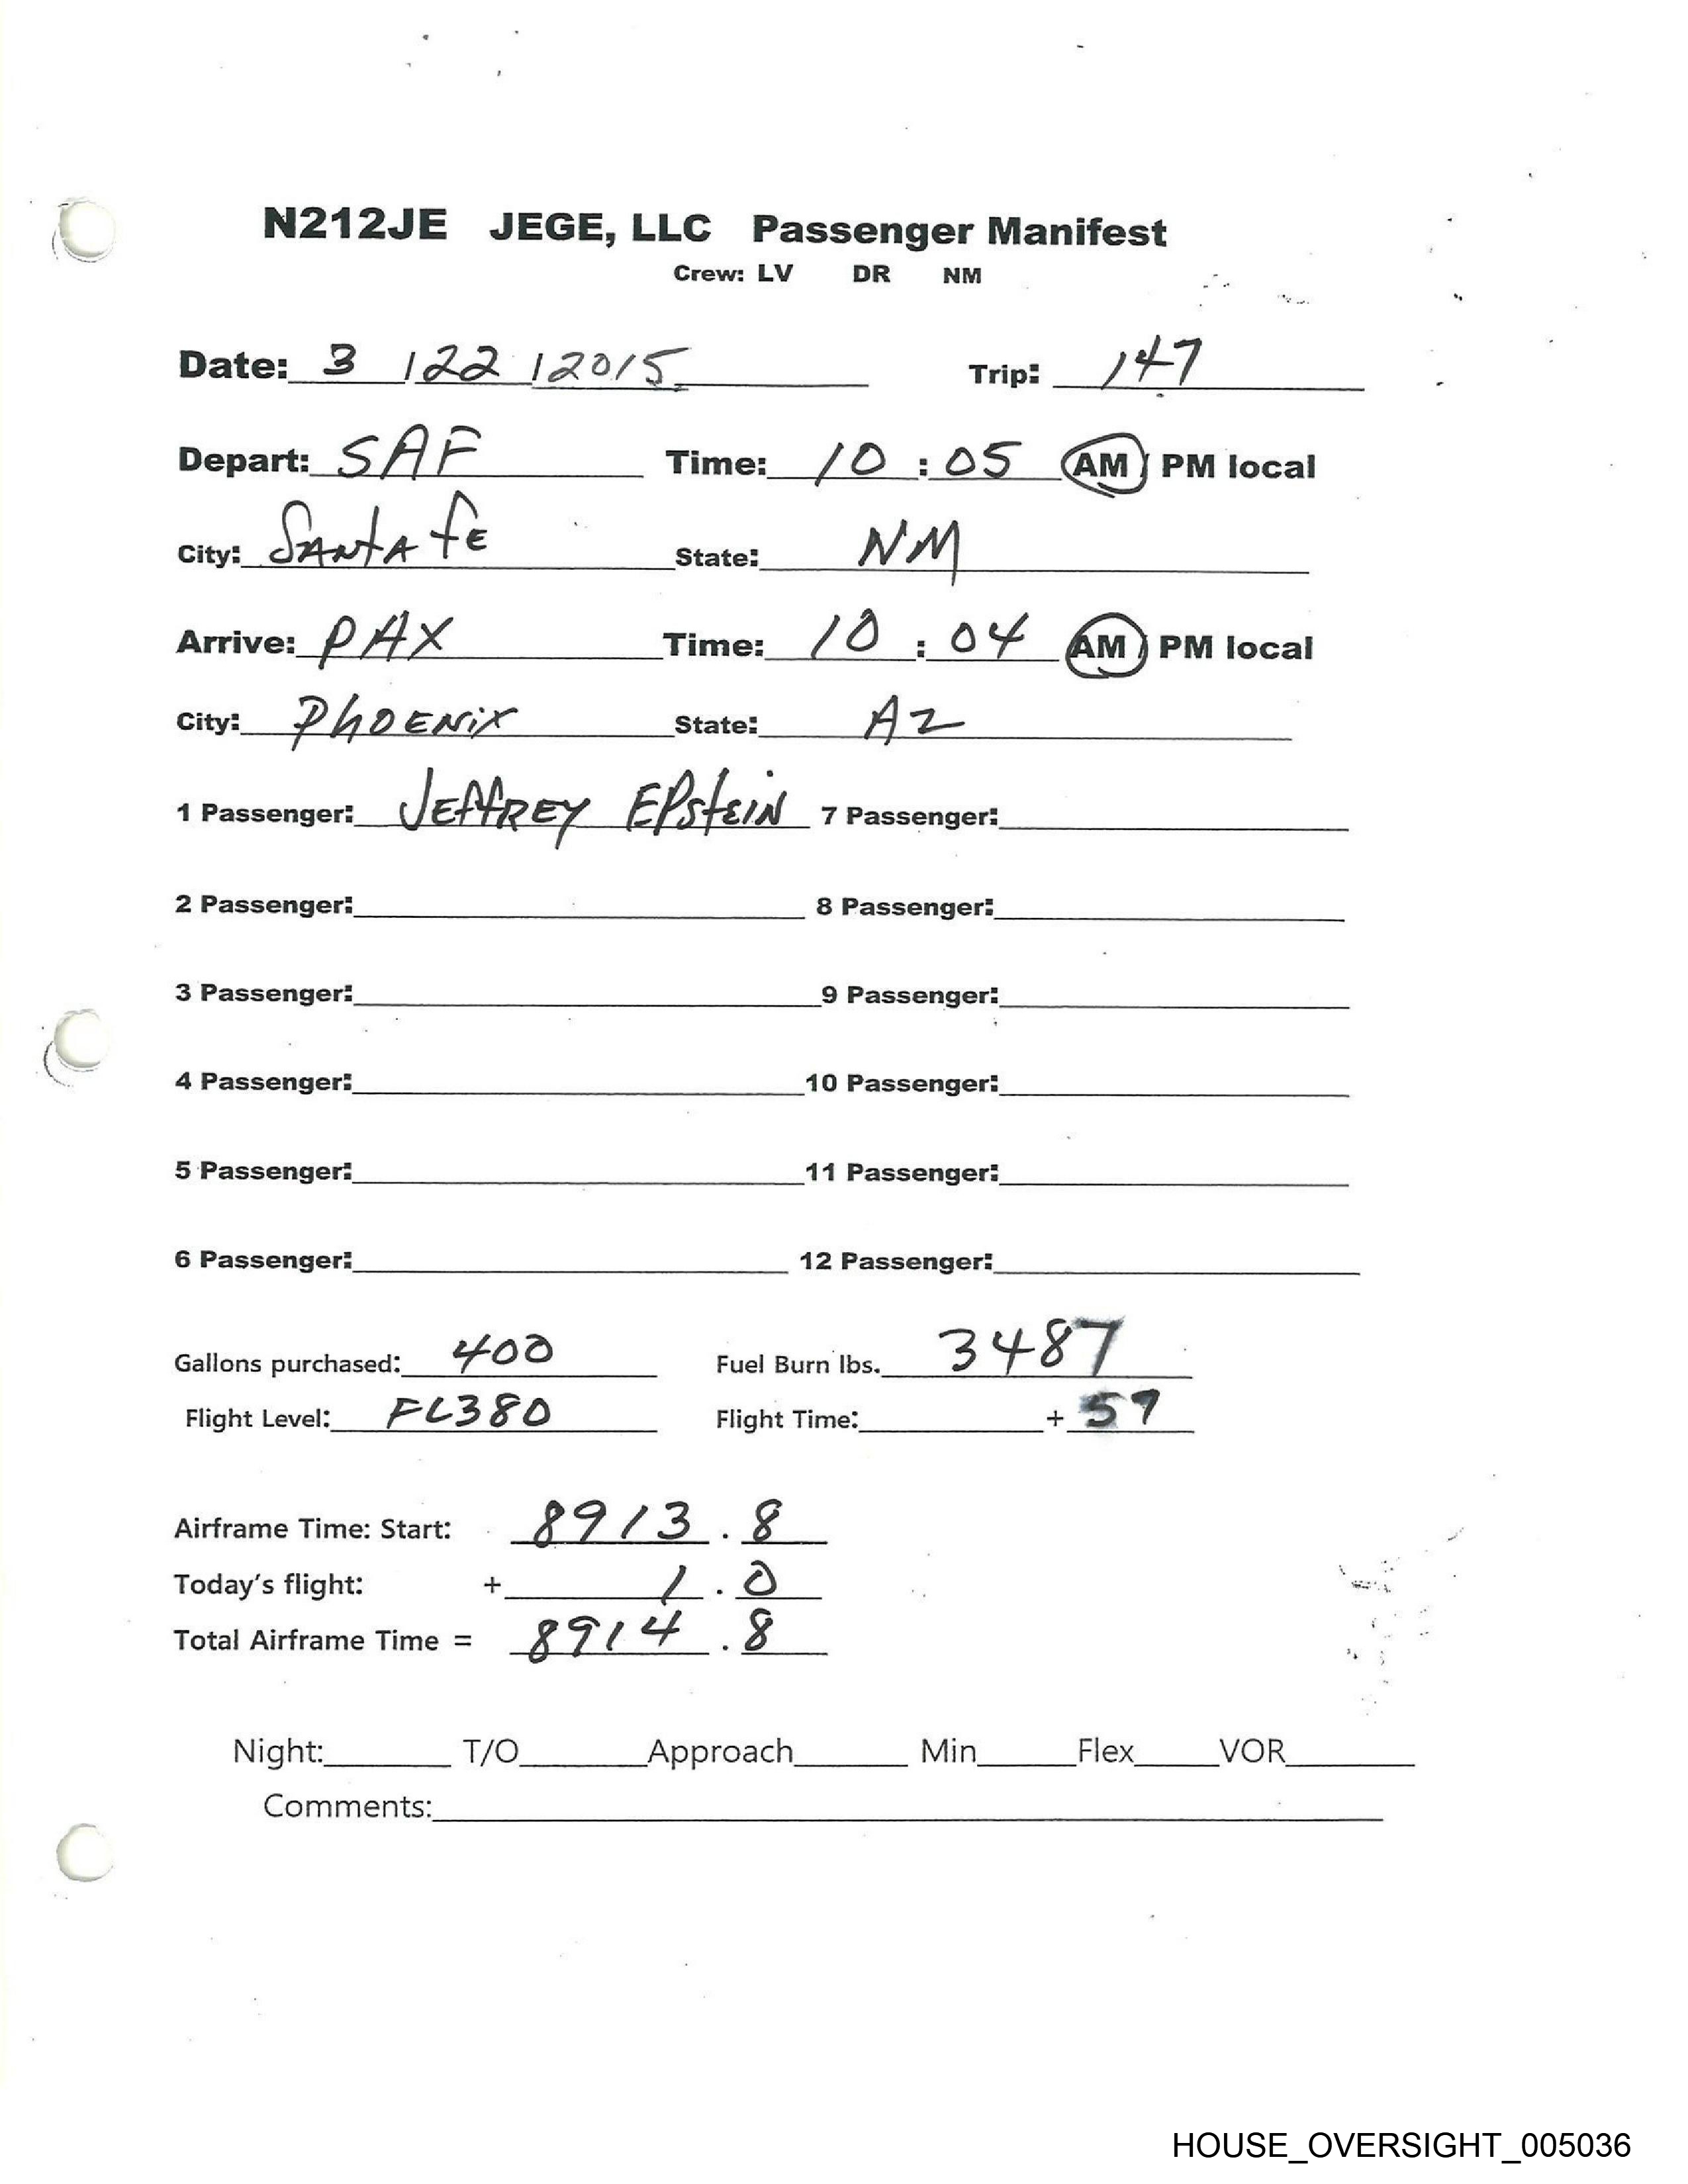 N212JE JEGE, LLC Passenger Manifest
Crew: LV DR NM
Date: 3 / 22 / 2015 Trip: 147
Depart: SAF Time: 10 : 05 AM / PM local
City: SANTA FE State: NM
Arrive: PAX Time: 10 : 04 AM / PM local
City: PHOENIX State: AZ
1 Passenger: JEFFREY EPSTEIN 7 Passenger:
2 Passenger: 8 Passenger:
3 Passenger: 9 Passenger:
4 Passenger: 10 Passenger:
5 Passenger: 11 Passenger:
6 Passenger: 12 Passenger:
Gallons purchased: 400 Fuel Burn lbs. 3487
Flight Level: FL380 Flight Time: + 59
Airframe Time: Start: 8913 . 8
Today's flight: + 1 . 0
Total Airframe Time = 8914 . 8
Night: T/O Approach Min Flex VOR
Comments:
HOUSE_OVERSIGHT_005036